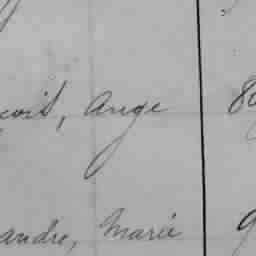 çois, Ange 80
andre, Marie 9